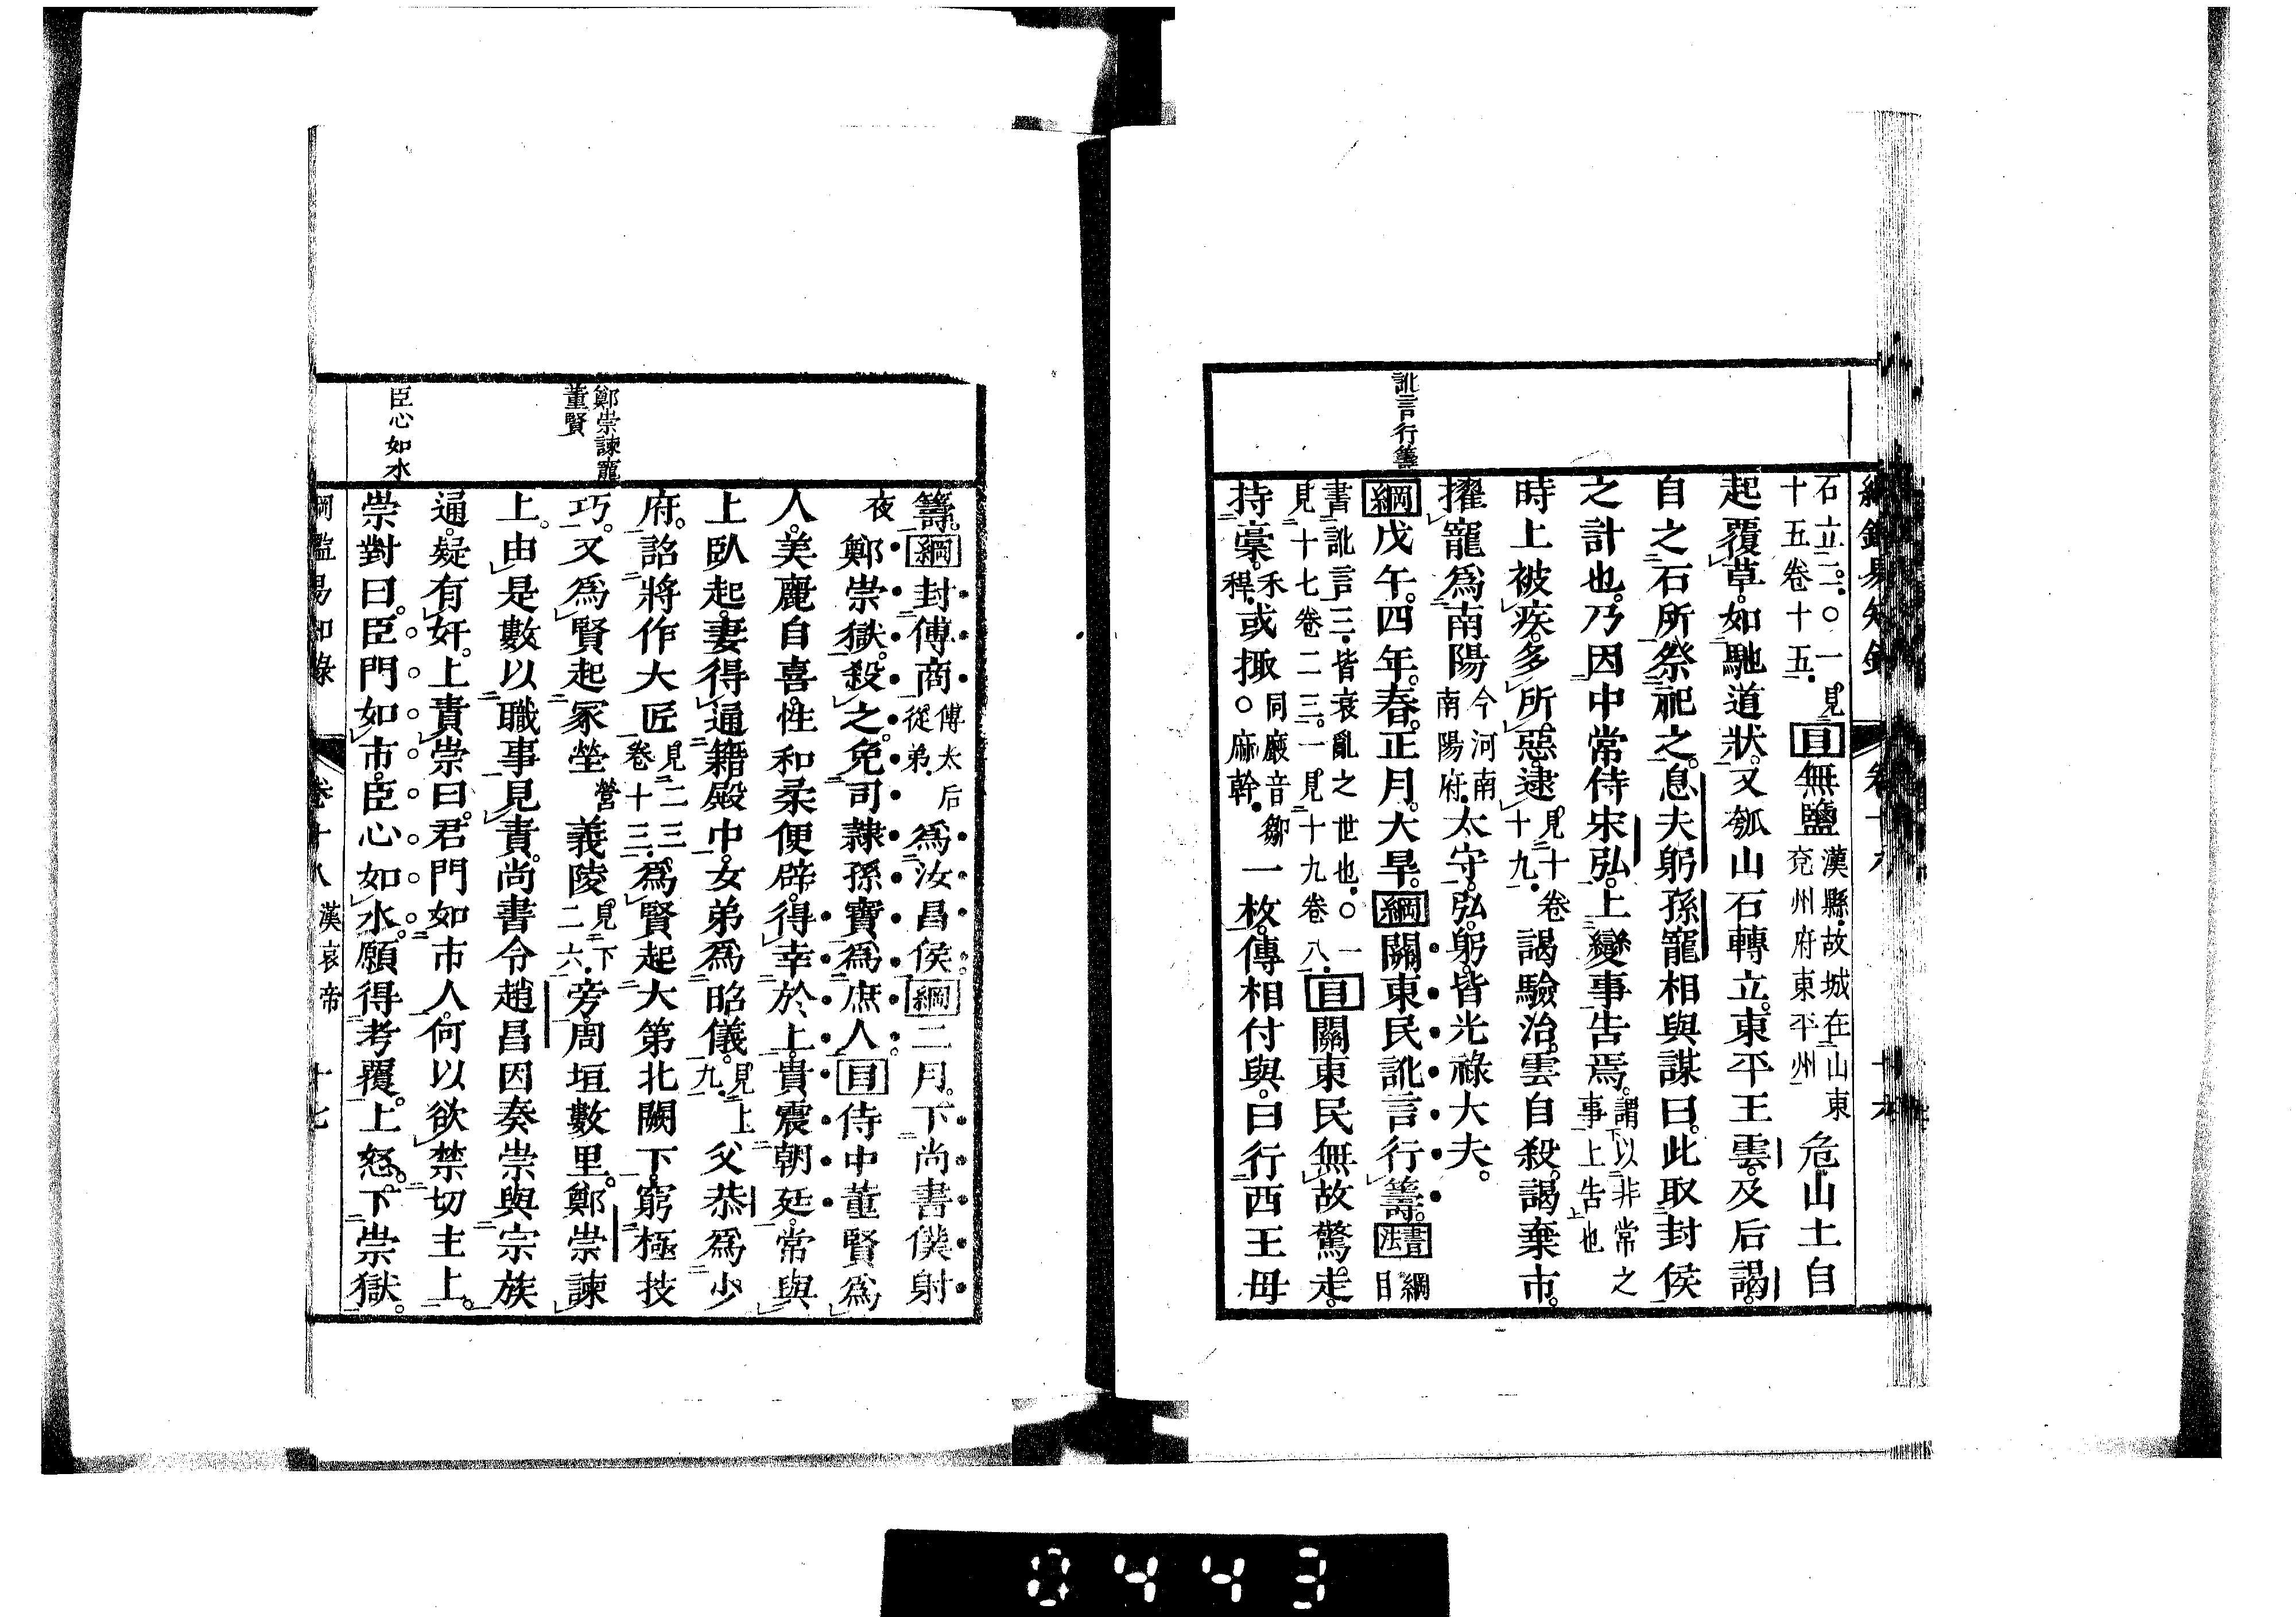 訛言行籌
石立二。○一見
十五卷十五.
目無鹽
漢縣.故城在山東
兗州府東平州
危山土自
起覆草。如馳道狀。又瓠山石轉立。東平王雲。及后謁。
自之石所祭祀之。息夫躬孫寵相與謀曰。此取封侯
之計也。乃因中常侍宋弘。上變事告焉。
謂以非常之
事上告也
時上被疾。多所惡。逮
見十卷
十九.
謁驗治。雲自殺。謁棄市。
擢寵為南陽
今河南
南陽府.
太守。弘。躬。皆光祿大夫。
綱戊午。四年。春。正月。大旱。綱關東民訛言行籌。書法
綱目
書訛言三.皆衰亂之世也.○一
見十七卷二三。一見十九卷八.
目關東民無故驚走。
持稾。
禾稈.
或掫
同廠音鄒
○麻幹.
一枚。傳相付與。曰行西王母
鄭崇諫寵
董賢
臣心如水
籌。綱封傅商
傅太后
從弟.
為汝昌侯。綱二月。下尚書僕射
夜
鄭崇獄。殺之。免司隸孫寶為庶人。目侍中董賢為
人。美麗自喜。性和柔便辟。得幸於上。貴震朝廷。常與
上臥起。妻得通籍殿中。女弟為昭儀。
見上
九.
父恭為少
府。詔將作大匠
見二三
卷十三.
為賢起大第北闕下。窮極技
巧。又為賢起冢塋
營
義陵
見下
二六.
旁。周垣數里。鄭崇諫
上。由是數以職事見責。尚書令趙昌因奏崇與宗族
通。疑有奸。上責崇曰。君門如市人。何以欲禁切主上。
崇對曰。臣門如市。臣心如水。願得考覆。上怒。下崇獄。
綱鑑易知錄 卷十八 漢哀帝 十七